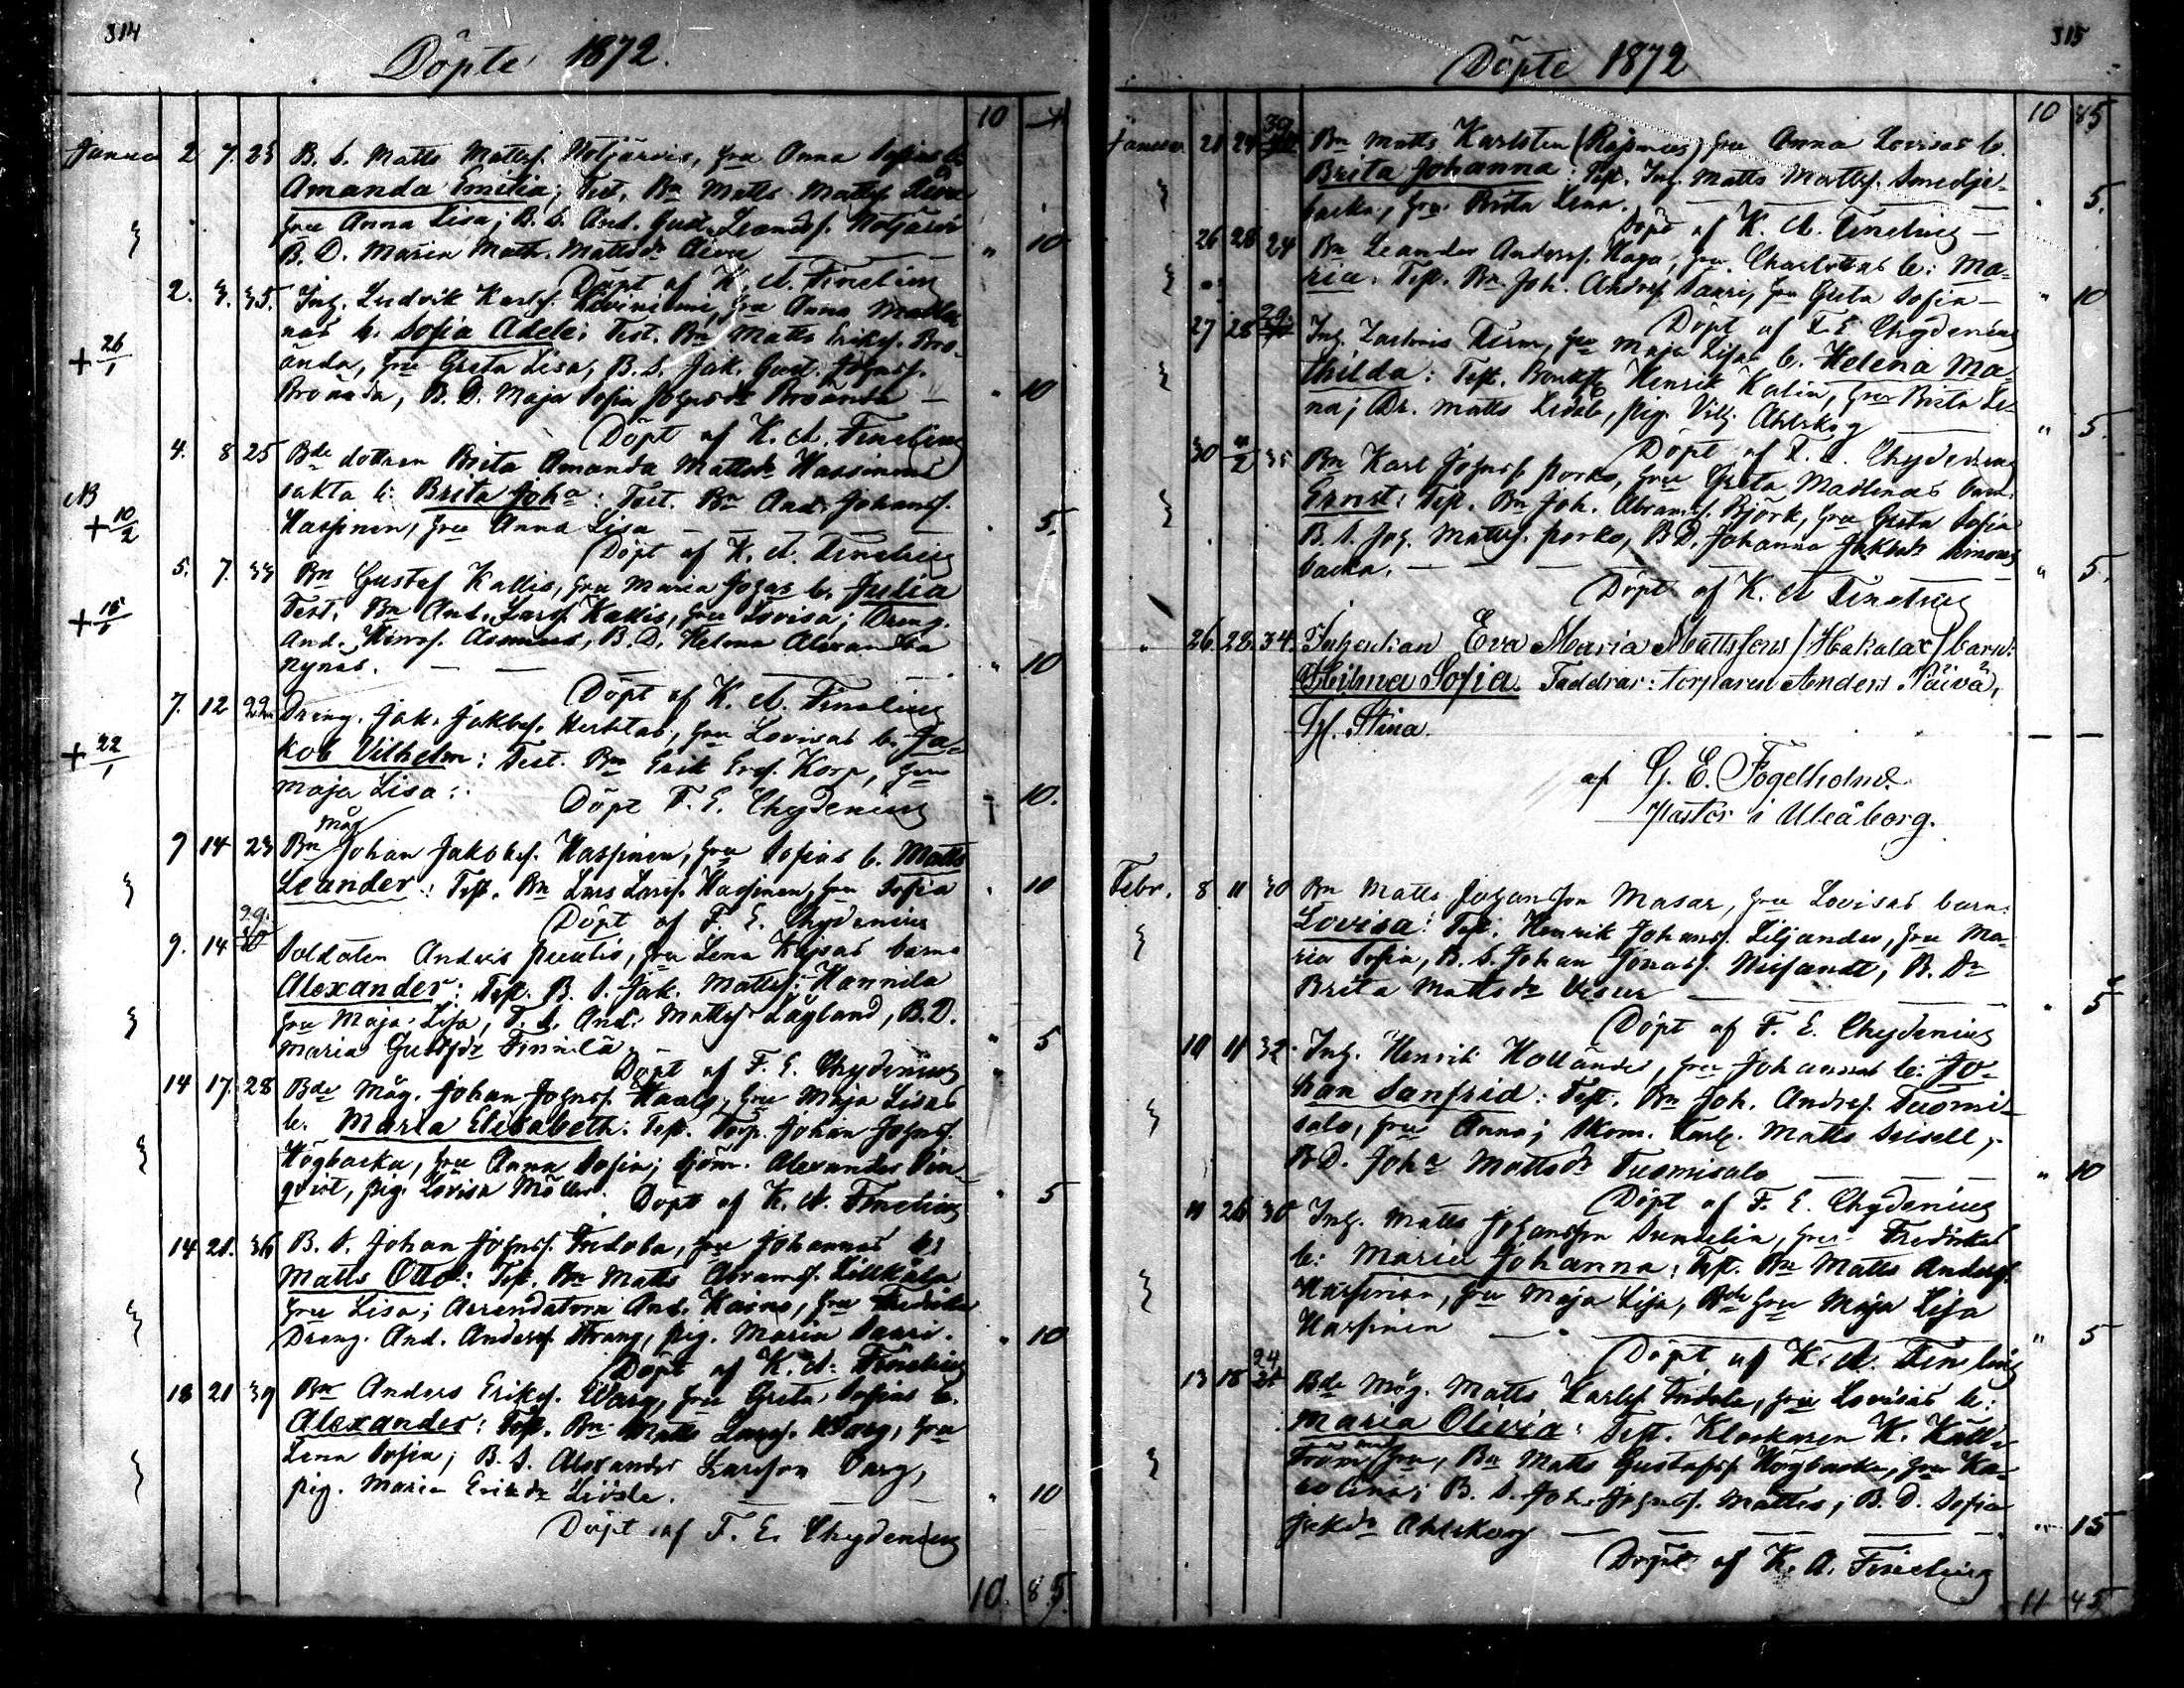 314
Döpte 1872.
10
Janua 2 7. 23 B. S. Matts Mattss. Notjärvis, fru Anna Sofias b.
Amanda Emilia; Test. Bn Matts Mattss.
fru Anna Lisa; B. S. And. Gust. Leandss. Notjärvi
B. D. Maria Math. Mattsdr " 10
Döpt af K. A. Finelius
2. 3. 35. Ludvik Karlss. fru Anna Madle
nas b. Sofia Adele: Test. Bn Matts Erikss. Bro-
+ 26/1 ända, fru Greta Lisa, B. S. Jak. Gust. Johnss.
Broända, B. D. Maja Sofia Johnsdr Broända — " 10
Döpt af K. A. Finelius
4. 8 25 Bde dottren Brita Amanda Mattsdr Hassinens
NB oäkta b: Brita Joha: Test. Bn And. Johanss.
+ 10/2 Hassinen, fru Anna Lisa — . 5.
Döpt af K. A. Finelius
5. 7. 33 Bn Gustaf Kallis, fru Maria Johas b. Julia
+ Test. Bn And. Larss. Kallis, fru Lovisa; Dreng.
And. B. D. Helena Alexandra
Nynäs. — — " 10
Döpt af K. A. Finelius
7. 12 22. Dreng. Jak. Jakobss. fru Lovisas b. Ja-
+ 22/1 kob Vilhelm: Test. Bn Erik Ersf. Korp, fru
Maja Lisa: 10.
Döpt F. E. Chydenius
9 14 23 Bn Måg Johan Jakobss. Hassinen, fru Sofias b. Matts
Leander: Test. Bn Lars Larss. Hassinen, fru Sofia . 10
Döpt af F. E. Chydenius
9. 14 29. Soldaten Anders fru Lena Kajsas barn
Alexander: Test. B. S. Jak. Mattss. Hannila
fru Maja Lisa, And. Mattss. Lågland, B. D.
Maria Gustfdr Finnilä " 5
Döpt af F. E. Chydenius
14 17. 28 Bde Måg. Johan Johnss. fru Maja Lisas
b. Maria Elisabeth: Test. Torp. Johan Johnss.
Högbacka, fru Anna Sofia; Sjöm. Alexander Lin-
qvist, pig. Lovisa Möller. " 5
Döpt af K. A. Finelius
14 21. 36 B. S. Johan Johnss. Indola, fru Johannas b:
Matts Otto: Test. Bn Matts Abramss. Lillkåla
fru Lisa; Arrendatorn And. Kaino, fru Fredrika
Dreng. And. Anderss. Strang, pig. Maria Saari. " 10
Döpt af K. A. Finelius
18 21 39 Bn Anders Erikss. Warg, fru Greta Sofias b.
Alexander: Test. Bn Matts Larss. Warg, fru
Lena Sofia; B. S. Alexander Larsson Varg,
pig. Maria Eriksdr — — " 10
Döpt af F. E. Chydenius
10. 85.
315
Döpte 1872
10 85
Januari 21 24 39 Bn Matts Karlsten fru Anna Lovisas b.
Brita Johanna: Test. Matts Mattss. Smedje-
backa, fru Brita Lena. — — " 5.
Döpt af K. A. Finelius
26 28 24 Bn Leander Anderss. Haga, fru Charlottas b: Ma-
ria: Test. Bn Joh. Andss. Saari, fru Greta Sofia — " 10
Döpt af F. E. Chydenius
27 28 29. fru Maja Lisas b. Helena Ma-
thilda: Test. Henrik Kalin, fru Brita Le-
na; Dr. Matts pig. Vilh. Ahlskog " 5.
Döpt af F. E. Chydenius
30 4/2 35 Bn Karl Johnss. Porko, fru Greta Madlenas barn.
Ernst: Test. Bn Joh. Abramss. Björk, fru Greta Sofia
B. S. Joh. Mattss. Porko, B. D. Johanna Jakobsdr Simons
backa. — — — " 5.
Döpt af K. A. Finelius
" 26. 28. 34. Inhyskan Eva Maria Mattssons / Hakalax / barn:
Hilma Sofia. Faddrar: torparen Anders Päivä,
H. Stina. — —
af G. E. Fogelholm
Pastor i Uleåborg.
Febr. 8 11 30 Bn Matts Johansson Masar, fru Lovisas barn:
Lovisa: Test. Henrik Johanss. Liljander, fru Ma-
ria Sofia, B. S. Johan Jonass. B. Dr
Brita Mattsdr Visur — — " 5
Döpt af F. E. Chydenius
10 11 32. Henrik Hollander, fru Johannas b: Jo-
han Sanfrid: Test. Bn Joh. Andrss. Tuomi-
salo, fru Anna; Skom. Matts
B. D. Joha Mattsdr Tuomisalo — " 10
Döpt af F. E. Chydenius
11 26 30 Matts Johansson Sundelin, fru Fredrikas
b: Maria Johanna: Test. Bn Matts Anderss.
Hassinen, fru Maja Lisa, Bde fru Maja Lisa
Hassinen — — " 5
Döpt af K. A. Finelius
13 18 24 Bde Måg. Matts Karlss. Indola, fru Lovisas b:
Maria Olivia: Test. Klockaren K. Käll-
ström, fru, Bn Matts Gustafss. Högbacka, fru Ka-
rolina; B. S. Joh. Johnss. Mattus; B. D. Sofia
Jakdr Ahlskog — — " 15
Döpt af K. A. Finelius
11 45